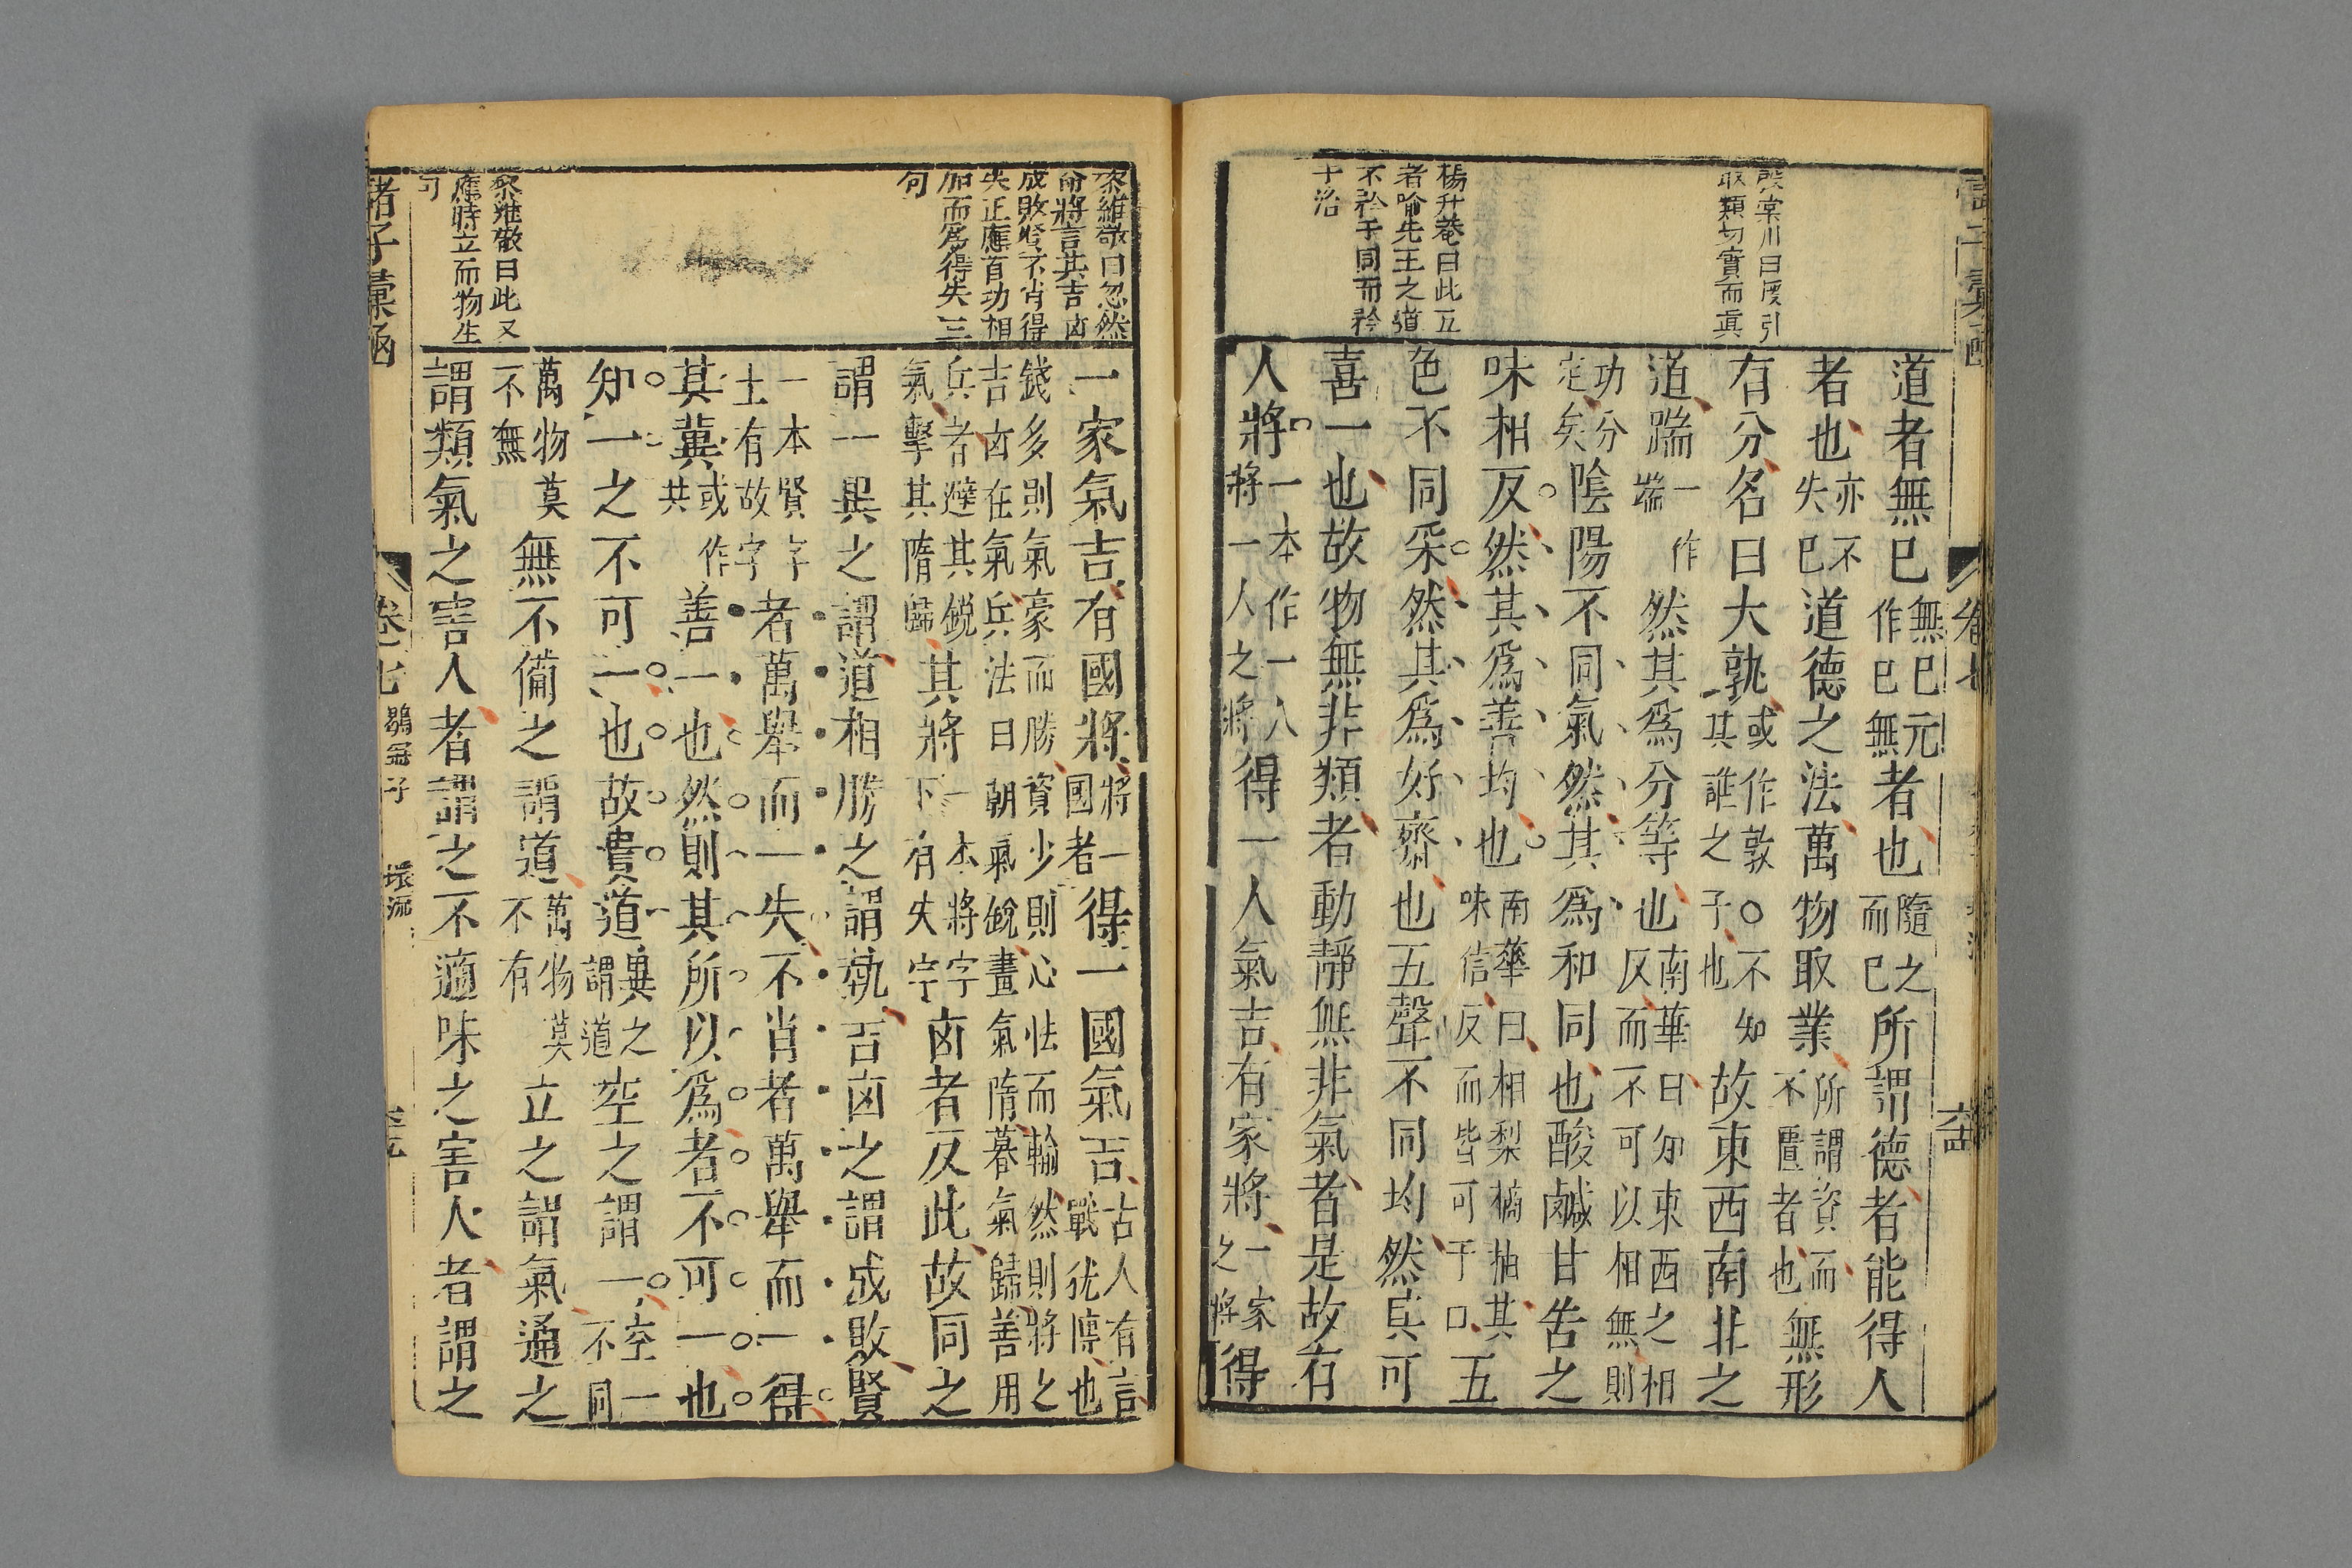 諸子彙函
卷七
六十四
熊棠川曰度引
取類切實而眞
楊升菴曰此五
者喻先王之道
不矜于同而矜
于治
道者無巳無巳元作巳無者也隨之而巳所謂德者能得人
者也亦不失巳道德之法萬物取業所謂資而不匱者也無形
有分名曰大孰或作敦○不知其誰之子也故東西南北之
道踹一作端然其爲分等也南華曰知東西之相反而不可以相無則
功分定矣陰陽不同氣然其爲和同也酸鹹甘苦之
味相反然其爲善均也南華曰相梨橘柚其味信反而皆可于口五
色不同采然其爲好齊也五聲不同均然其可
喜一也故物無非類者動靜無非氣者是故有
人將一本作一人將一人之將得一人氣吉有家將一家之將得
黎維敬曰忽然
命將言其吉凶
成敗賢不肖得
失正應首功相
加而爲得失三
句
黎維敬曰此又
應時立而物生
句
一家氣吉有國將將一國者得一國氣吉古人有言戰猶博也
錢多則氣豪而勝資少則心怯而輸然則將之吉凶在氣兵法曰朝氣銳晝氣隋暮氣歸善用
兵者避其銳氣擊其隋歸其將一本將字下有失字凶者反此故同之
謂一異之謂道相勝之謂埶吉凶之謂成敗賢
一本賢字土有故字者萬舉而一失不肖者萬舉而一得
其冀或作共善一也然則其所以爲者不可一也
知一之不可一也故貴道異之謂道空之謂一空一不同
萬物莫不無無不備之謂道萬物莫不有立之謂氣通之
謂類氣之害人者謂之不適味之害人者謂之
諸子彙函
卷七
鶡冠子
環流
六十五